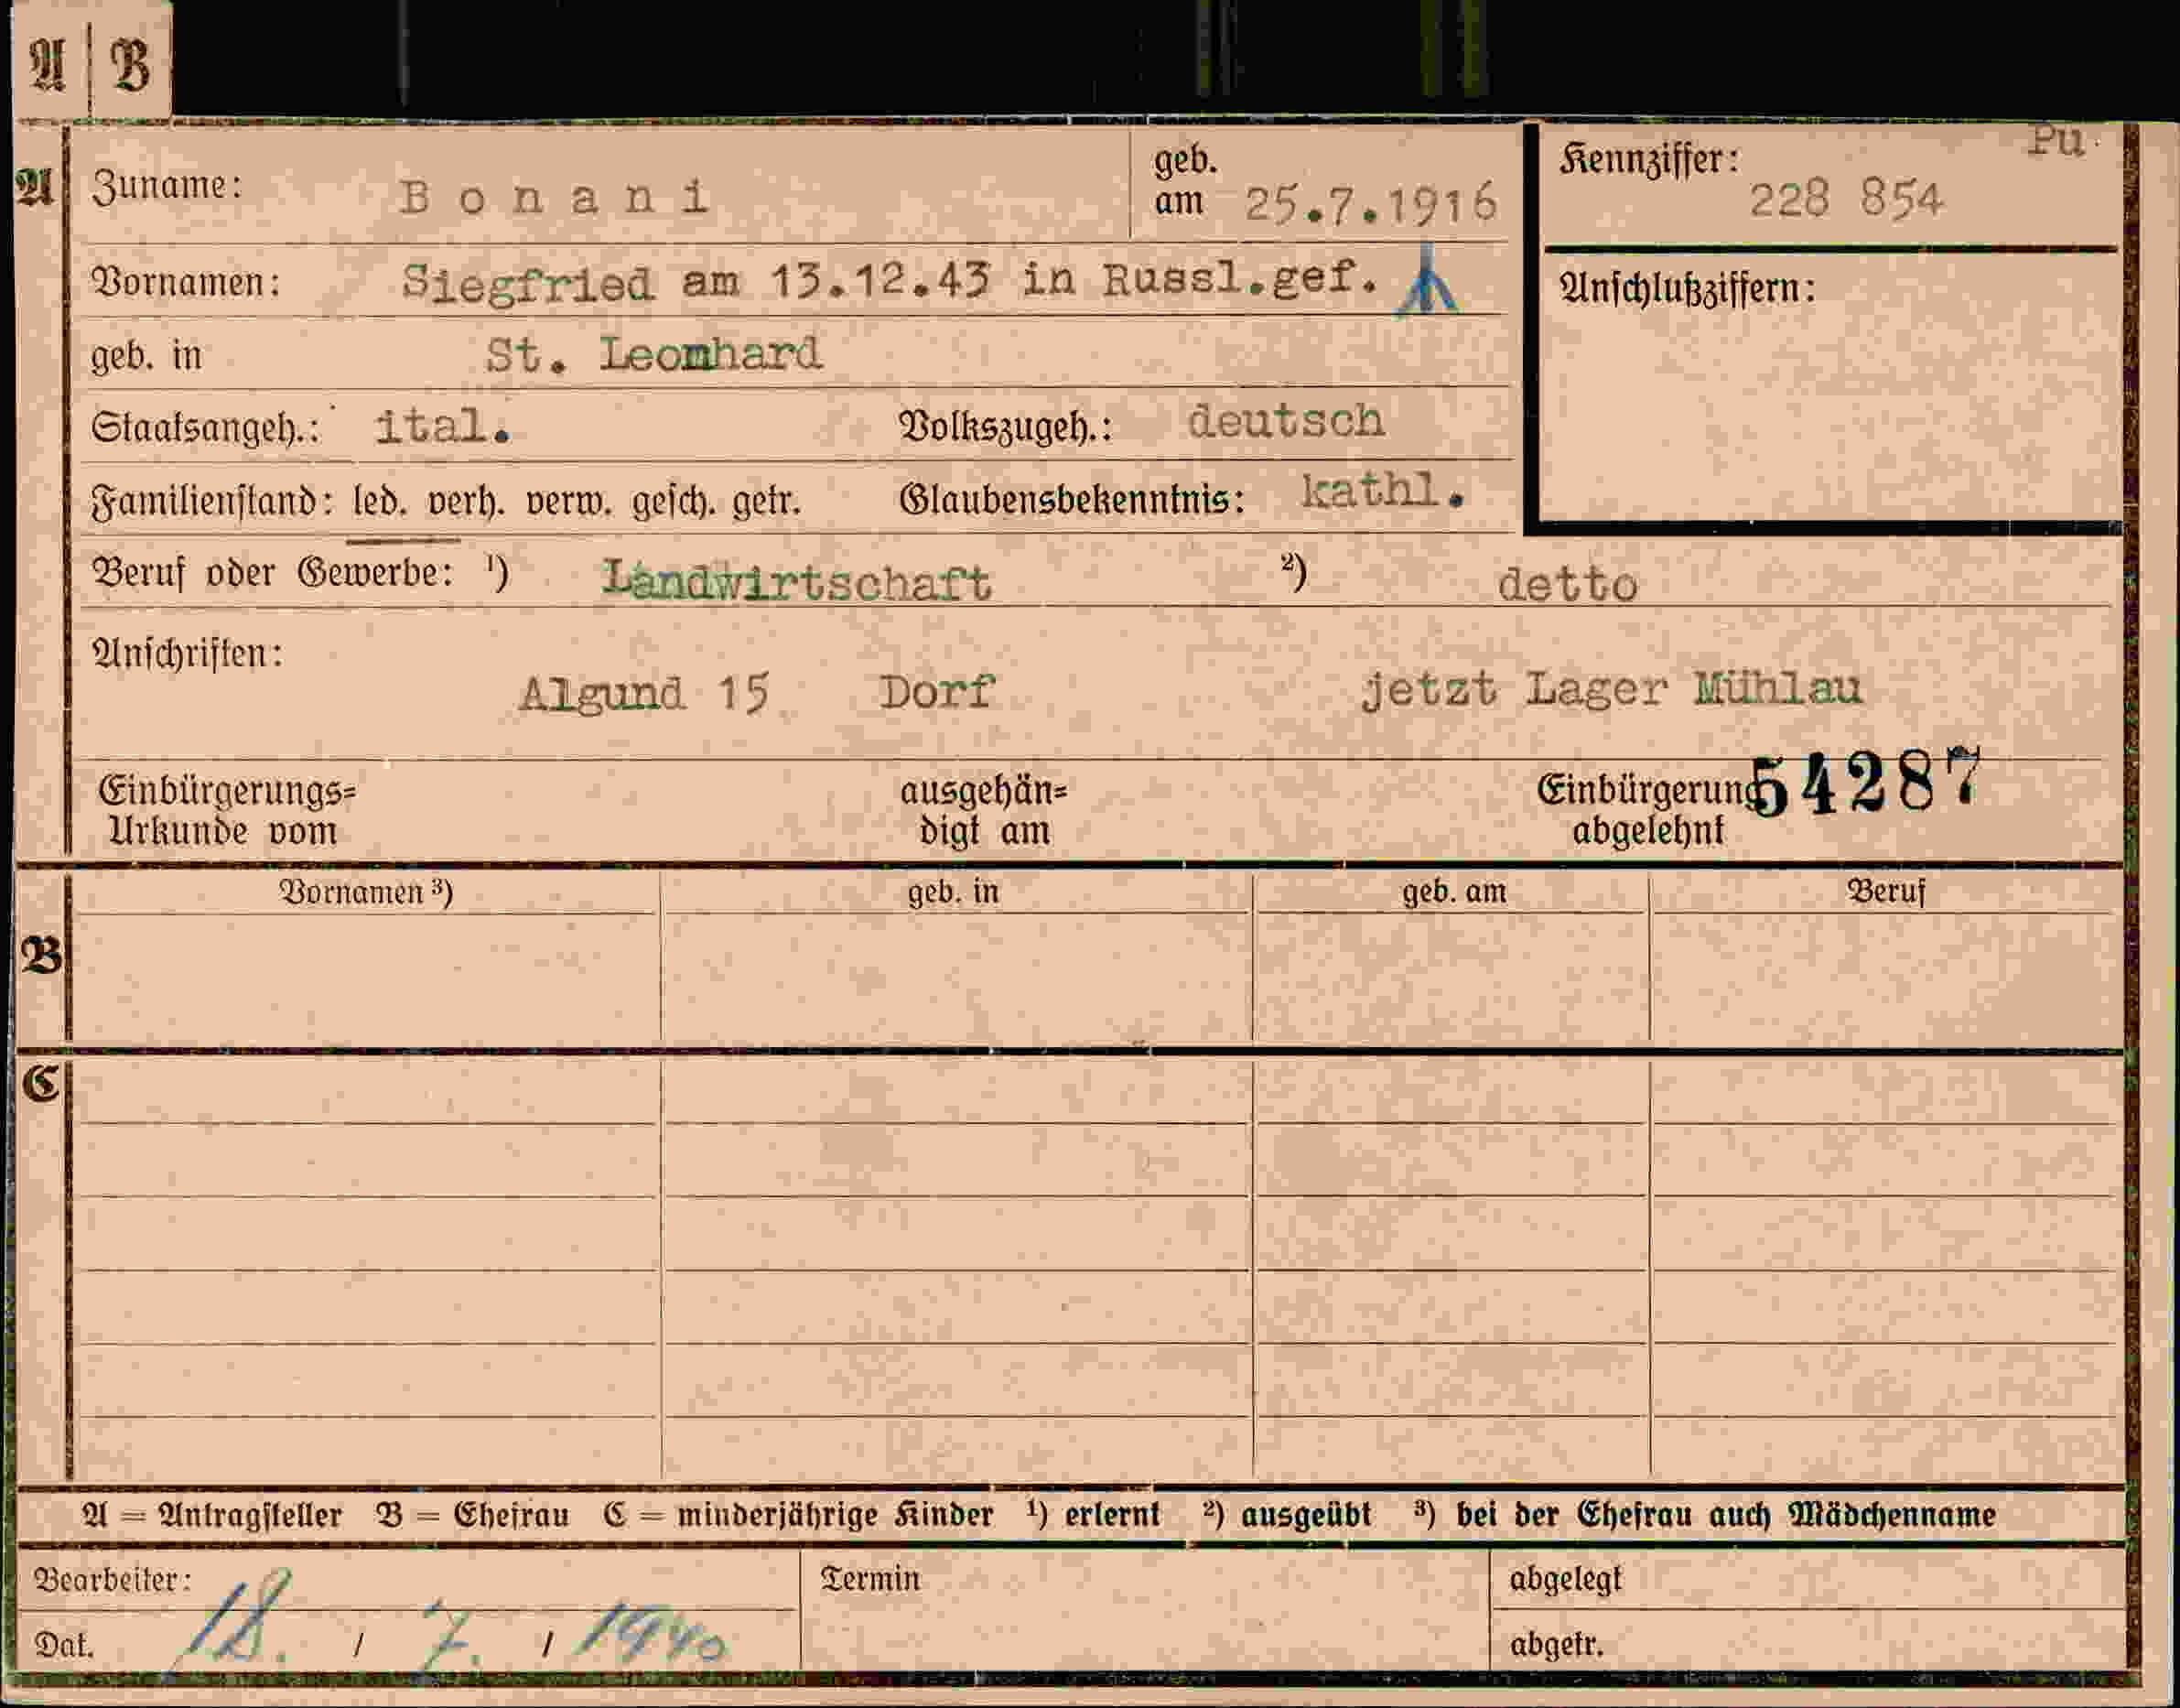 A B
Pu
A Zuname: Bonani geb. am 25.7.1916 Kennziffer: 228 854
Vornamen: Siegfried am 13.12.43 in Russl.gef. Anschlußziffern:
geb. in St. Leonhard
Staatsangeh.: ital. Volkszugeh.: deutsch
Familienstand: led. verh. verw. gesch. getr. Glaubensbekenntnis: kathl.
Beruf oder Gewerbe: ¹) Landwirtschaft ²) detto
Anschriften:
Algund 15 Dorf jetzt Lager Mühlau
Einbürgerungs= ausgehän= Einbürgerung 54287
Urkunde vom digt am abgelehnt
Vornamen ³) geb. in geb. am Beruf
B
C
A = Antragsteller B = Ehefrau C = minderjährige Kinder ¹) erlernt ²) ausgeübt ³) bei der Ehefrau auch Mädchenname
Bearbeiter: Termin abgelegt
Dat. 18. / 7. / 1940 abgetr.